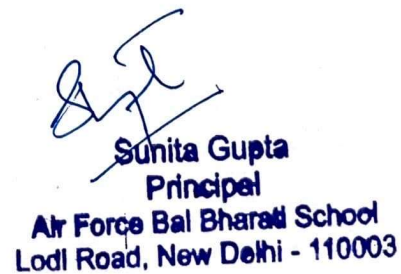 Sunita Gupta
Principal
Air Force Bal Bharati School
Lodi Road, New Delhi - 110003